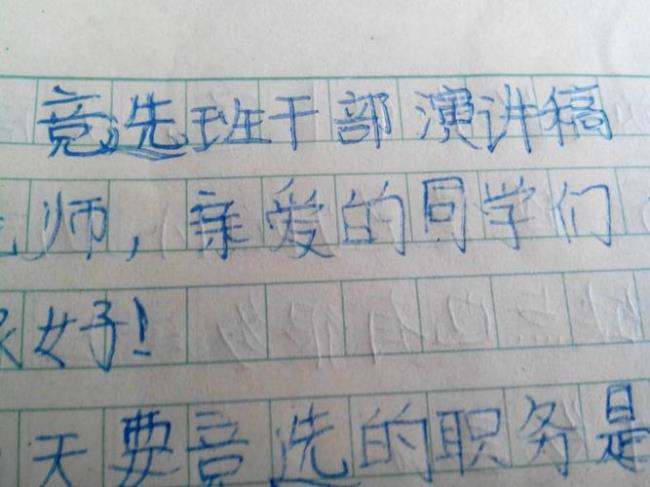 竞选班干部演讲稿
师，亲爱的同学们
好！
天要竞选的职务是